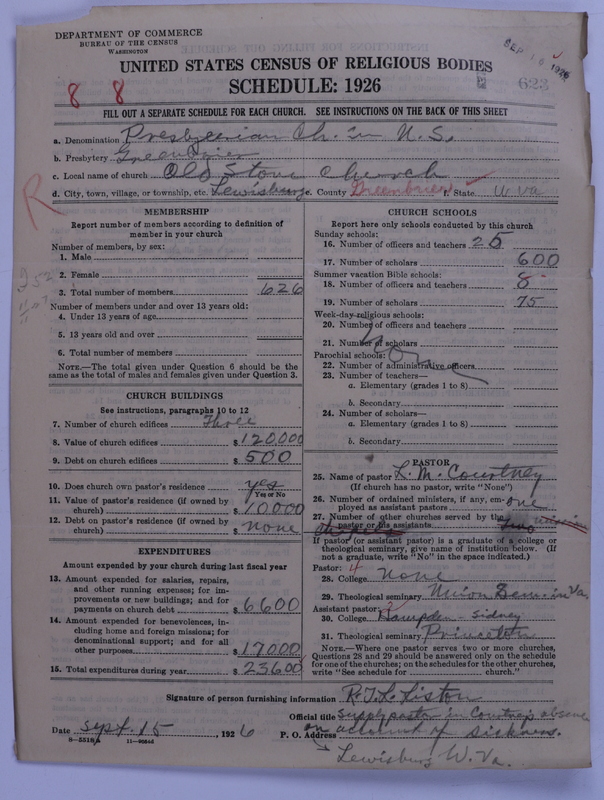 DEPARTMENT OF COMMERCE
BUREAU OF THE CENSUS
WASHINGTON
SEP 1926
UNITED STATES CENSUS OF RELIGIOUS BODIES
SCHEDULE: 1926
623
8 8
FILL OUT A SEPARATE SCHEDULE FOR EACH CHURCH. SEE INSTRUCTIONS ON THE BACK OF THIS SHEET
a. Denomination Presbyterian Ch. in U.S.
b. Presbytery Greenbrier
c. Local name of church Old Stone Church
d. City, town, village, or township, etc. Lewisburg e. County Greenbrier f. State W Va
R
MEMBERSHIP
Report number of members according to definition of
member in your church
Number of members, by sex:
1. Male
2. Female
3. Total number of members 626
Number of members under and over 13 years old:
4. Under 13 years of age
5. 13 years old and over
6. Total number of members
NOTE.—The total given under Question 6 should be the
same as the total of males and females given under Question 3.
CHURCH BUILDINGS
See instructions, paragraphs 10 to 12
7. Number of church edifices Three
8. Value of church edifices $120,000
9. Debt on church edifices $500
10. Does church own pastor's residence yes
Yes or No
11. Value of pastor's residence (if owned by
church) $10000
12. Debt on pastor's residence (if owned by
church) $none
EXPENDITURES
Amount expended by your church during last fiscal year
13. Amount expended for salaries, repairs,
and other running expenses; for im-
provements or new buildings; and for
payments on church debt $6600
14. Amount expended for benevolences, in-
cluding home and foreign missions; for
denominational support; and for all
other purposes $17000
15. Total expenditures during year $23600
CHURCH SCHOOLS
Report here only schools conducted by this church
Sunday schools:
16. Number of officers and teachers 25
17. Number of scholars 600
Summer vacation Bible schools:
18. Number of officers and teachers 8
19. Number of scholars 75
Week-day religious schools:
20. Number of officers and teachers
21. Number of scholars
Parochial schools:
22. Number of administrative officers
23. Number of teachers—
a. Elementary (grades 1 to 8)
b. Secondary
24. Number of scholars—
a. Elementary (grades 1 to 8)
b. Secondary
none
PASTOR
25. Name of pastor L. M. Courtney
(If church has no pastor, write "None")
26. Number of ordained ministers, if any, em-
ployed as assistant pastors one
27. Number of other churches served by the
pastor or his assistants
If pastor (or assistant pastor) is a graduate of a college or
theological seminary, give name of institution below. (If
not a graduate, write "No" in the space indicated.)
Pastor: 4
28. College None
29. Theological seminary Union Sem. in Va.
Assistant pastor:
30. College Hampden-Sidney
31. Theological seminary Princeton
NOTE.—Where one pastor serves two or more churches,
Questions 28 and 29 should be answered only on the schedule
for one of the churches; on the schedules for the other churches,
write "See schedule for church."
Signature of person furnishing information R. T. L. Liston
Official title Supply pastor in Courtney's absence
on account of sickness.
Date Sept. 15, 1926 P. O. Address
Lewisburg W. Va.
8—5518